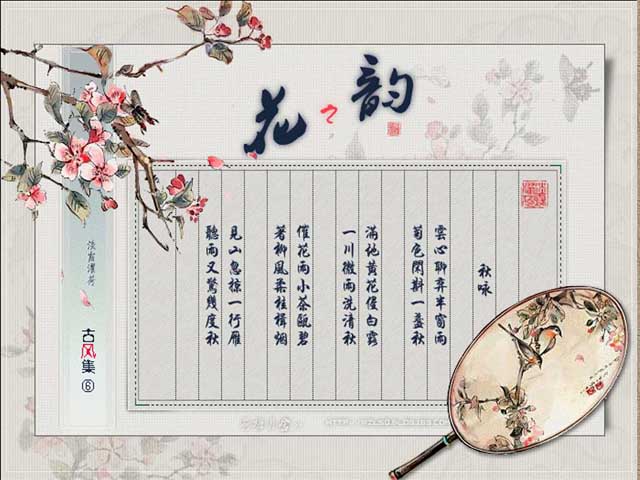 花之韵
秋咏
雲心聊弃半窗雨
菊色閑斟一盞秋
滿地黃花侵白露
一川微雨洗清秋
催花雨小茶甌碧
著柳風柔桂楫烟
見山忽掠一行雁
聽雨又驚幾度秋
古风集⑥